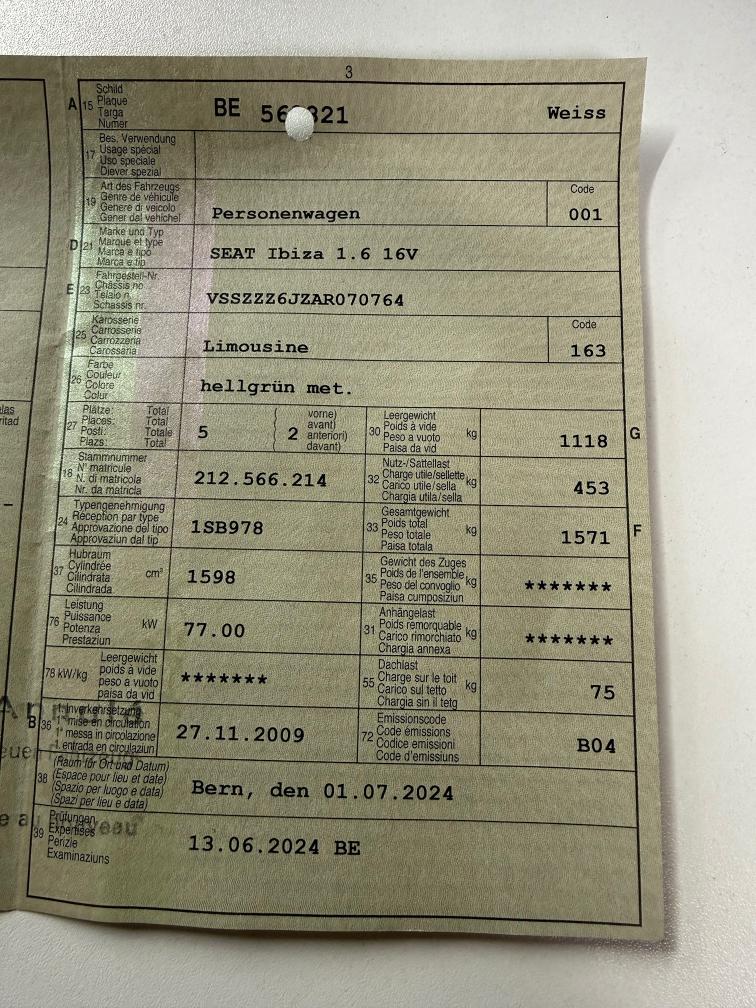 3
A 15 Schild
Plaque
Targa
Numer
BE 56 821 Weiss
17 Bes. Verwendung
Usage spécial
Uso speciale
Diever spezial
19 Art des Fahrzeugs
Genre de véhicule
Genere di veicolo
Gener dal vehichel
Personenwagen
Code
001
D 21 Marke und Typ
Marque et type
Marca e tipo
Marca e tip
SEAT Ibiza 1.6 16V
E 23 Fahrgestell-Nr.
Châssis no
Telaio n.
Schassis nr.
VSSZZZ6JZAR070764
25 Karosserie
Carrosserie
Carrozzeria
Carossaria
Limousine
Code
163
26 Farbe
Couleur
Colore
Colur
hellgrün met.
27 Plätze: Total
Places: Total
Posti: Totale
Plazs: Total
5
2
vorne)
avant)
anteriori)
davant)
30 Leergewicht
Poids à vide
Peso a vuoto
Paisa da vid
kg
1118
G
18 Stammnummer
N° matricule
N. di matricola
Nr. da matricla
212.566.214
32 Nutz-/Sattellast
Charge utile/sellette
Carico utile/sella
Chargia utila/sella
kg
453
24 Typengenehmigung
Réception par type
Approvazione del tipo
Approvaziun dal tip
1SB978
33 Gesamtgewicht
Poids total
Peso totale
Paisa totala
kg
1571
F
37 Hubraum
Cylindrée
Cilindrata
Cilindrada
cm³
1598
35 Gewicht des Zuges
Poids de l'ensemble
Peso del convoglio
Paisa cumposiziun
kg
*******
76 Leistung
Puissance
Potenza
Prestaziun
kW
77.00
31 Anhängelast
Poids remorquable
Carico rimorchiato
Chargia annexa
kg
*******
78 kW/kg
Leergewicht
poids à vide
peso a vuoto
paisa da vid
*******
55 Dachlast
Charge sur le toit
Carico sul tetto
Chargia sin il tetg
kg
75
B 36 1. Inverkehrsetzung
1re mise en circulation
1a messa in circolazione
1. entrada en circulaziun
27.11.2009
72 Emissionscode
Code émissions
Codice emissioni
Code d'emissiuns
B04
38 (Raum für Ort und Datum)
(Espace pour lieu et date)
(Spazio per luogo e data)
(Spazi per lieu e data)
Bern, den 01.07.2024
39 Prüfungen
Expertises
Perizie
Examinaziuns
13.06.2024 BE